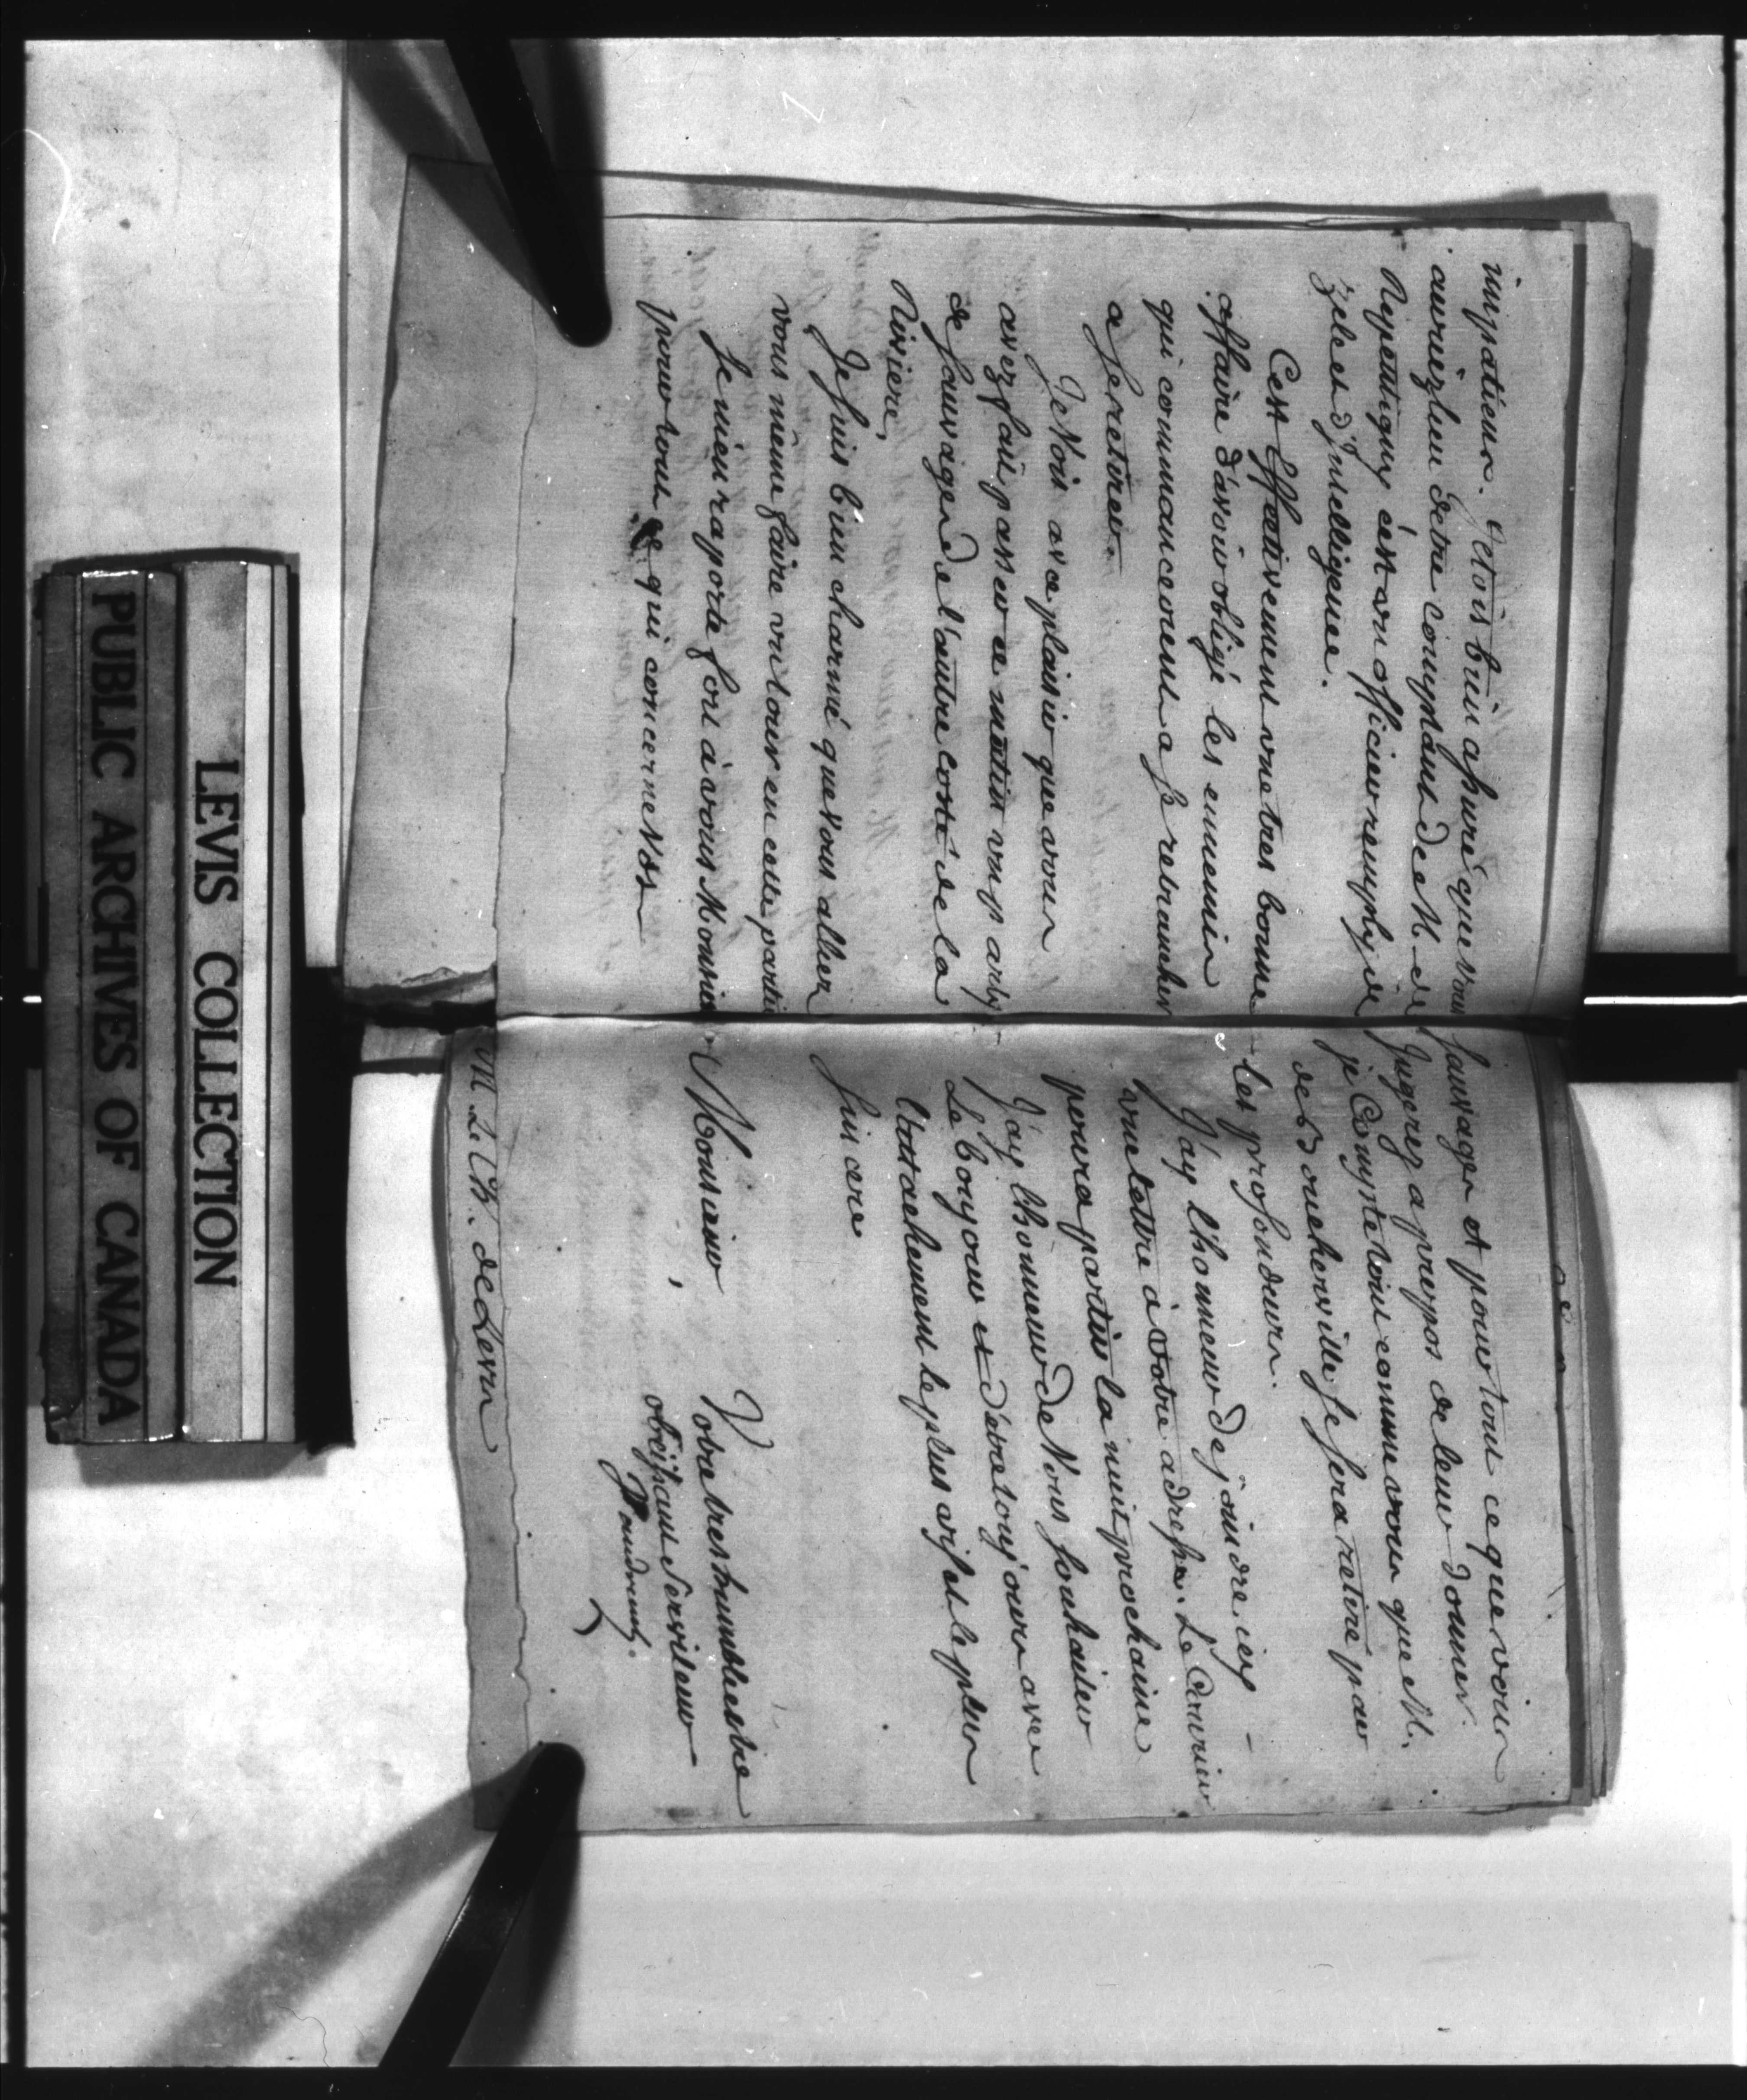 impatien. Jetois bien assuré que vous
auriez lieu detre comptant de M. de
Repentigny c'est un officier remply de
zele et d'intelligence.
C'est effectivement une tres bonne
affaire d'avoir obligé les ennemis
qui commancoient a se retrancher
a se retirer.
Je Vois avec plaisir que vous
avez fait passer ce matin un party
de sauvages de l'autre costé de la
Riviere,
Je suis bien charmé que vous allier
vous même faire un tour en cette partie
Je m'en raporte fort à vous Monsieur
pour tout ce qui concerne Nos
sauvages et pour tout ce que vous
Jugerez apropos de leur donner.
je Compte tout comme vous que M.
de Boucherville se sera retiré par
les profondeurs.
J'ay l'honneur de joindre icy -
une lettre à votre adresse. Le Courrier
poura partir la nuit prochaine
J'ay lhonneur de Vous souhaiter
Le bonjour et d'être toujours avec
l'attachement le plus vif et le plus
sincere
Monsieur
,
Votre tres humble et tres
obeissant Serviteur
Vaudreuil.
M. Le Ch. de Levis
LEVIS COLLECTION
PUBLIC ARCHIVES OF CANADA